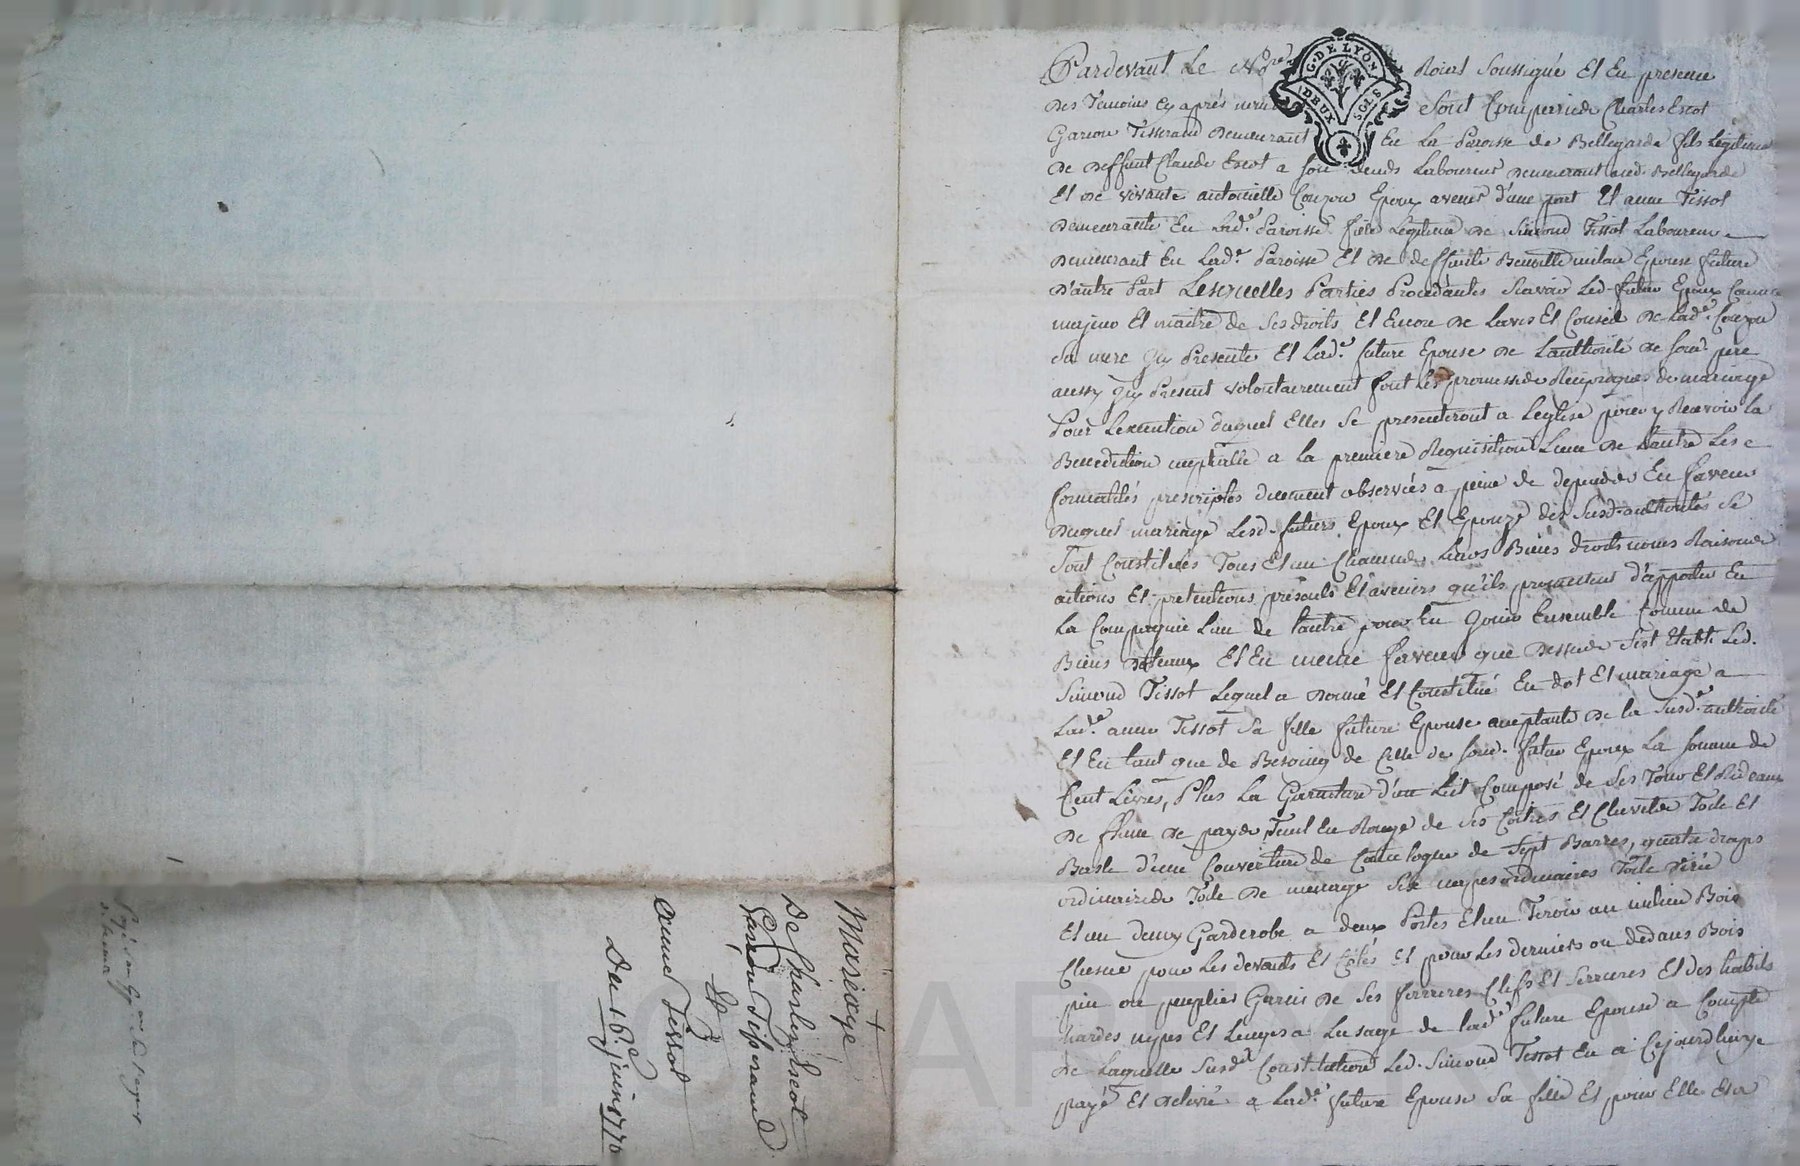 Pardevant Le No.re Roial Soussigné Et En presence
G. DE LYON
DEUX SOLS
Des Temoins Cy après nommés Sont Comparus Charles Escot
Garcon Tisserand Demeurant En La Paroisse de Bellegarde fils Légitime
De deffunt Claude Escot a son vivant Laboureur Demeurant aud. Bellegarde
Et De vivante antoinette Couzon Epoux avenir d'une part Et anne Tissot
Demeurante En Lad.e Paroisse fille Légitime De Simond Tissot Laboureur
Demeurant En Lad.e Paroisse Et De deffunte Benoitte milan Epouse future
D'autre Part Lesquelles Parties Procedantes Scavoir Led. futur Epoux Comme
majeur Et maitre de Ses droits Et Encore De Lavis Et Conseil De Lad.e Couzon
Sa mere Icy Presente Et Lad.e future Epouse De Lauthorité De Sond. pere
aussy Icy Present volontairement font Les promesses Reciproques de mariage
Pour Lexecution duquel Elles Se presenteront a Leglise pour y Recevoir La
Benediction nuptialle a la premiere Requisition Lune De Lautre Les
formalités prescriptes duement observées a peine de depends En faveur
Duquel mariage Lesd. futurs Epoux Et Epouze des Susd. authorités Se
Sont Constitués Tous Et un Chacuns Leurs Biens droits noms Raisons
actions Et pretentions présents Et àvenirs qu'ils promettent d'apporter En
La Compagnie Lun de Lautre pour En Jouir Ensemble Comme de
Biens Dotaux Et En meme faveur que Dessus Sest Etabli Led.
Simond Tissot Lequel a Donné Et Constitué En dot Et mariage a
Lad.e anne Tissot Sa fille future Epouse acceptante De la Susd.e authorité
Et En tant que de Besoing de Celle de Sond. futur Epoux La Somme de
Cent Livres, Plus La Garniture d'un Lit Composé de Ses Tour Et Rideaux
De De pays Teint En Rouge de Ses Coitres Et Chevets Toile Et
Basle d'une Couverture de Catalogne de Sept Barres, quatre draps
ordinaires Toile De menage Six nappes ordinaires Toile
Et un demy Garderobe a deux Portes Et un Tiroir au milieu Bois
Chesne pour Les devants Et Côtés Et pour Les derniers ou dedans Bois
pin ou peuplier Garni De Ses ferrures Clefs Et Serrures Et des habits
hardes nipes Et Linges a Lusage de Lad.e future Epouse a Compte
De Laquelle Susd.e Constitution Led. Simond Tissot En a Cejourdhuy
payé Et Delivré a Lad.e future Epouse Sa fille Et pour Elle Et a
Mariage
De Charles Escot
Garçon Tisserand
Et
anne Tissot
Du 16.e juin 1770